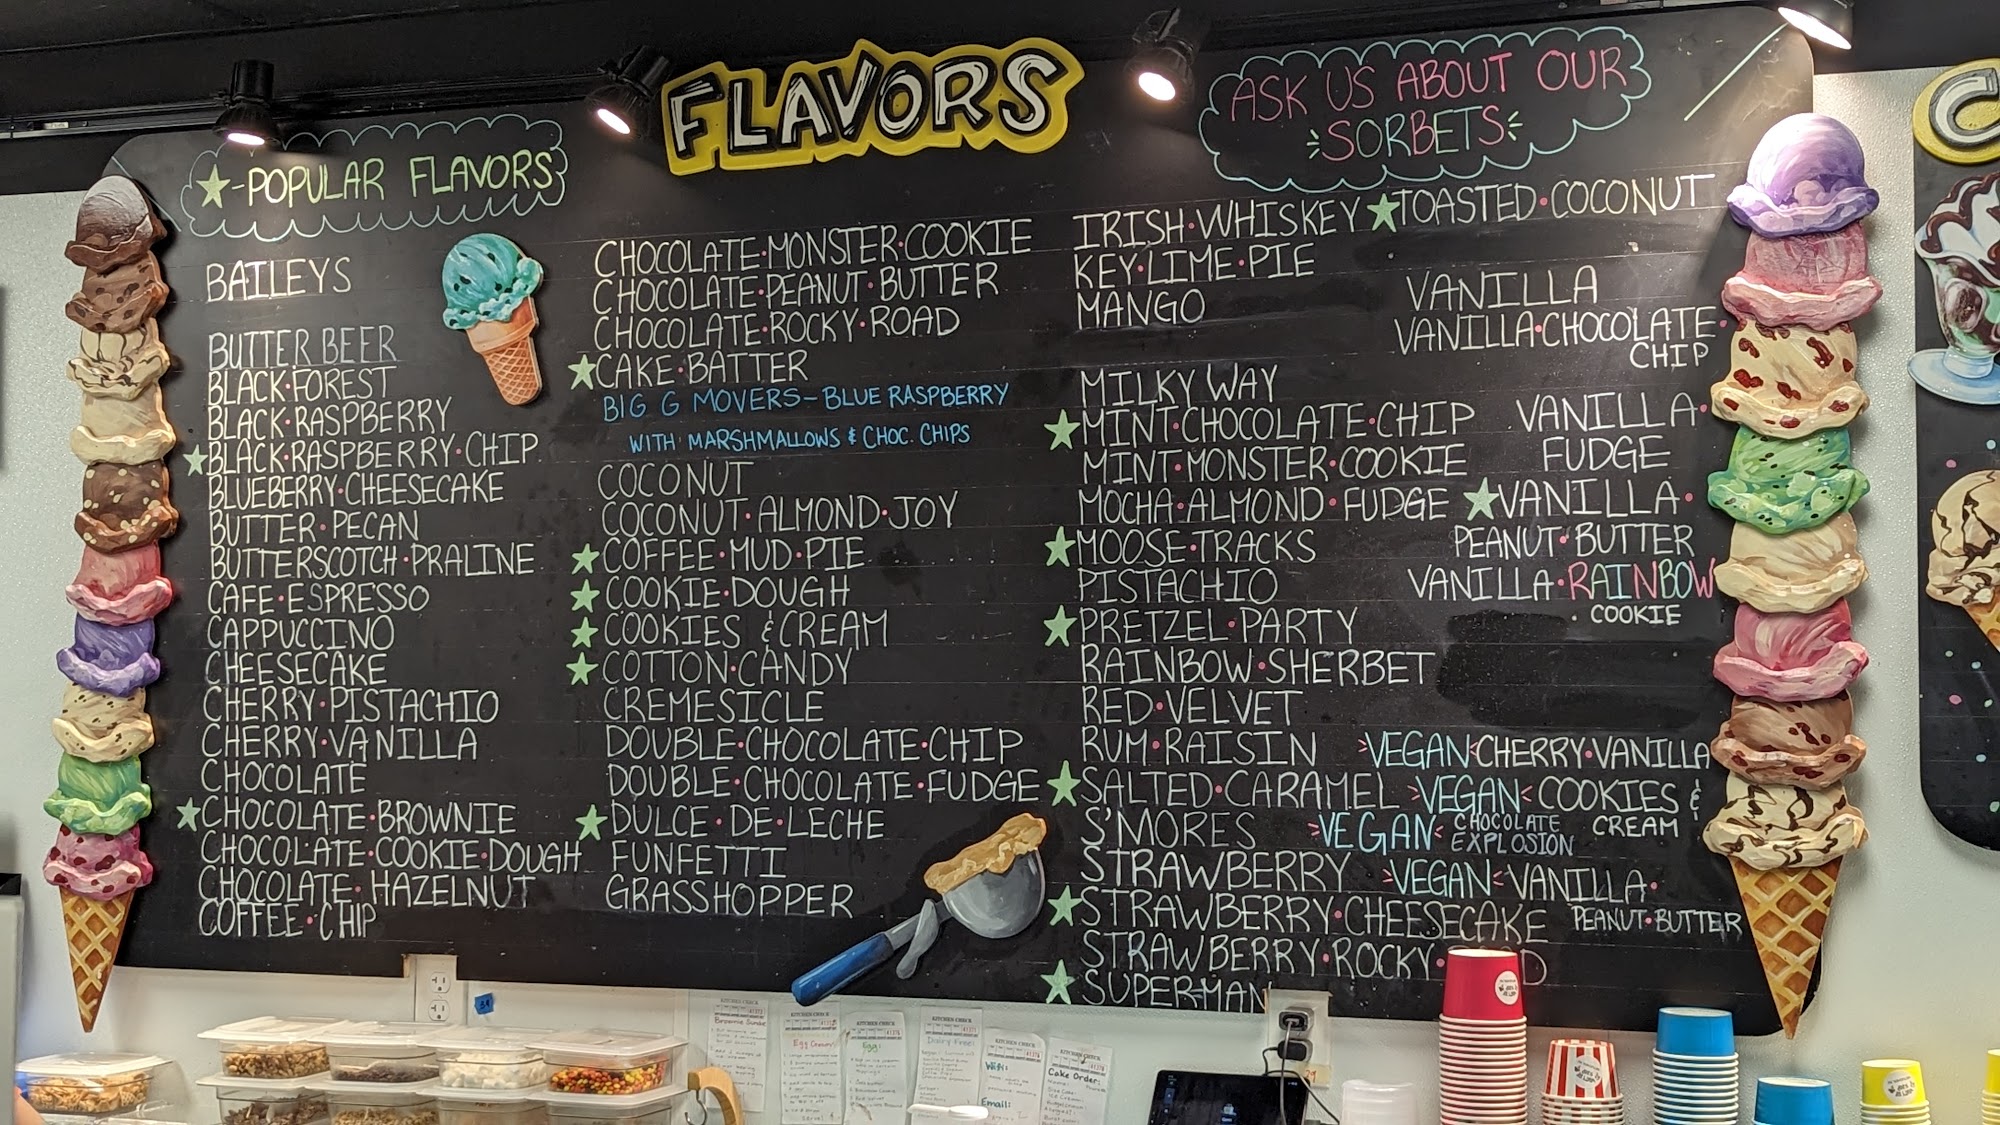 FLAVORS
★-POPULAR FLAVORS
ASK US ABOUT OUR
SORBETS
BAILEYS
BUTTER BEER
BLACK•FOREST
BLACK•RASPBERRY
★BLACK•RASPBERRY•CHIP
BLUEBERRY•CHEESECAKE
BUTTER•PECAN
BUTTERSCOTCH•PRALINE
CAFE•ESPRESSO
CAPPUCCINO
CHEESECAKE
CHERRY•PISTACHIO
CHERRY•VANILLA
CHOCOLATE
★CHOCOLATE•BROWNIE
CHOCOLATE•COOKIE•DOUGH
CHOCOLATE•HAZELNUT
COFFEE•CHIP
CHOCOLATE•MONSTER•COOKIE
CHOCOLATE•PEANUT•BUTTER
CHOCOLATE•ROCKY•ROAD
★CAKE•BATTER
BIG G MOVERS-BLUE RASPBERRY
WITH MARSHMALLOWS & CHOC. CHIPS
COCONUT
COCONUT•ALMOND•JOY
★COFFEE•MUD•PIE
★COOKIE•DOUGH
★COOKIES & CREAM
★COTTON•CANDY
CREMESICLE
DOUBLE•CHOCOLATE•CHIP
DOUBLE•CHOCOLATE•FUDGE
★DULCE•DE•LECHE
FUNFETTI
GRASSHOPPER
IRISH•WHISKEY
KEY•LIME•PIE
MANGO
MILKY WAY
★MINT•CHOCOLATE•CHIP
MINT•MONSTER•COOKIE
MOCHA•ALMOND•FUDGE
★MOOSE•TRACKS
PISTACHIO
★PRETZEL•PARTY
RAINBOW•SHERBET
RED•VELVET
RUM•RAISIN
★SALTED•CARAMEL
S'MORES
STRAWBERRY
★STRAWBERRY•CHEESECAKE
STRAWBERRY•ROCKY•
★SUPERMAN
★TOASTED•COCONUT
VANILLA
VANILLA•CHOCOLATE•
CHIP
VANILLA•
FUDGE
★VANILLA•
PEANUT•BUTTER
VANILLA•RAINBOW
•COOKIE
VEGAN CHERRY•VANILLA
VEGAN COOKIES &
CREAM
VEGAN CHOCOLATE
EXPLOSION
VEGAN VANILLA•
PEANUT•BUTTER
C
KITCHEN CHECK
Brownie Sundae
KITCHEN CHECK
Egg Cream:
KITCHEN CHECK
Egg:
KITCHEN CHECK
Dairy Free:
KITCHEN CHECK
Wifi:
Email:
KITCHEN CHECK
Cake Order: